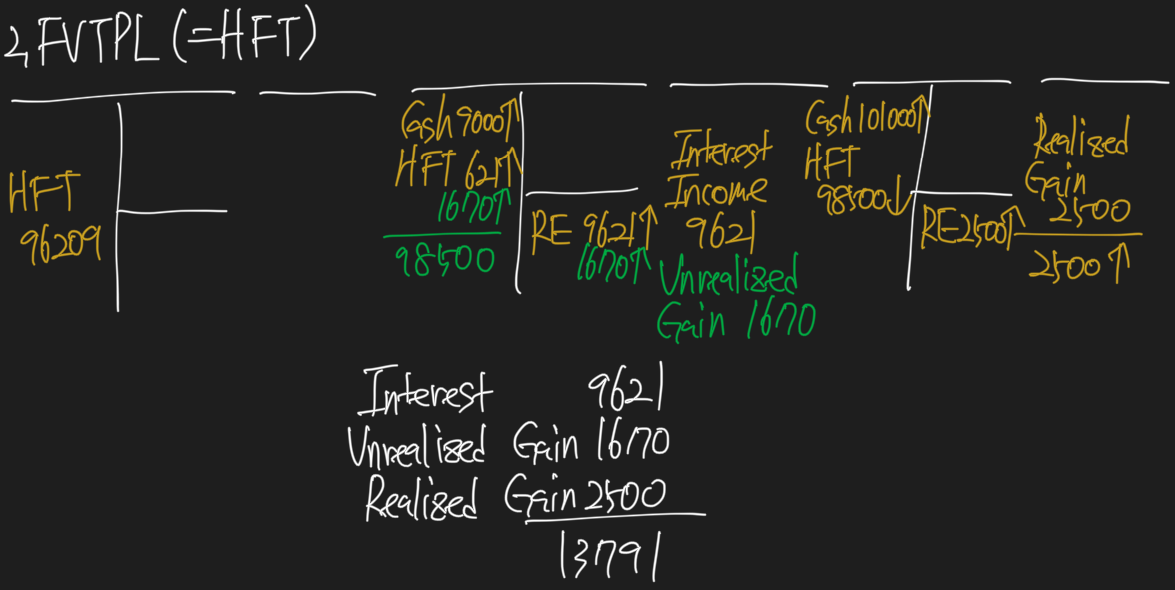 2, FVTPL (=HFT)
HFT
96209
Cash 9000↑
HFT 621↑
1670↑
98500
RE 9621↑
1670↑
Interest
Income
9621
Unrealized
Gain 1670
Cash 101000↑
HFT
98500↓
RE 2500↑
Realized
Gain
2500
2500↑
Interest 9621
Unrealized Gain 1670
Realized Gain 2500
13791